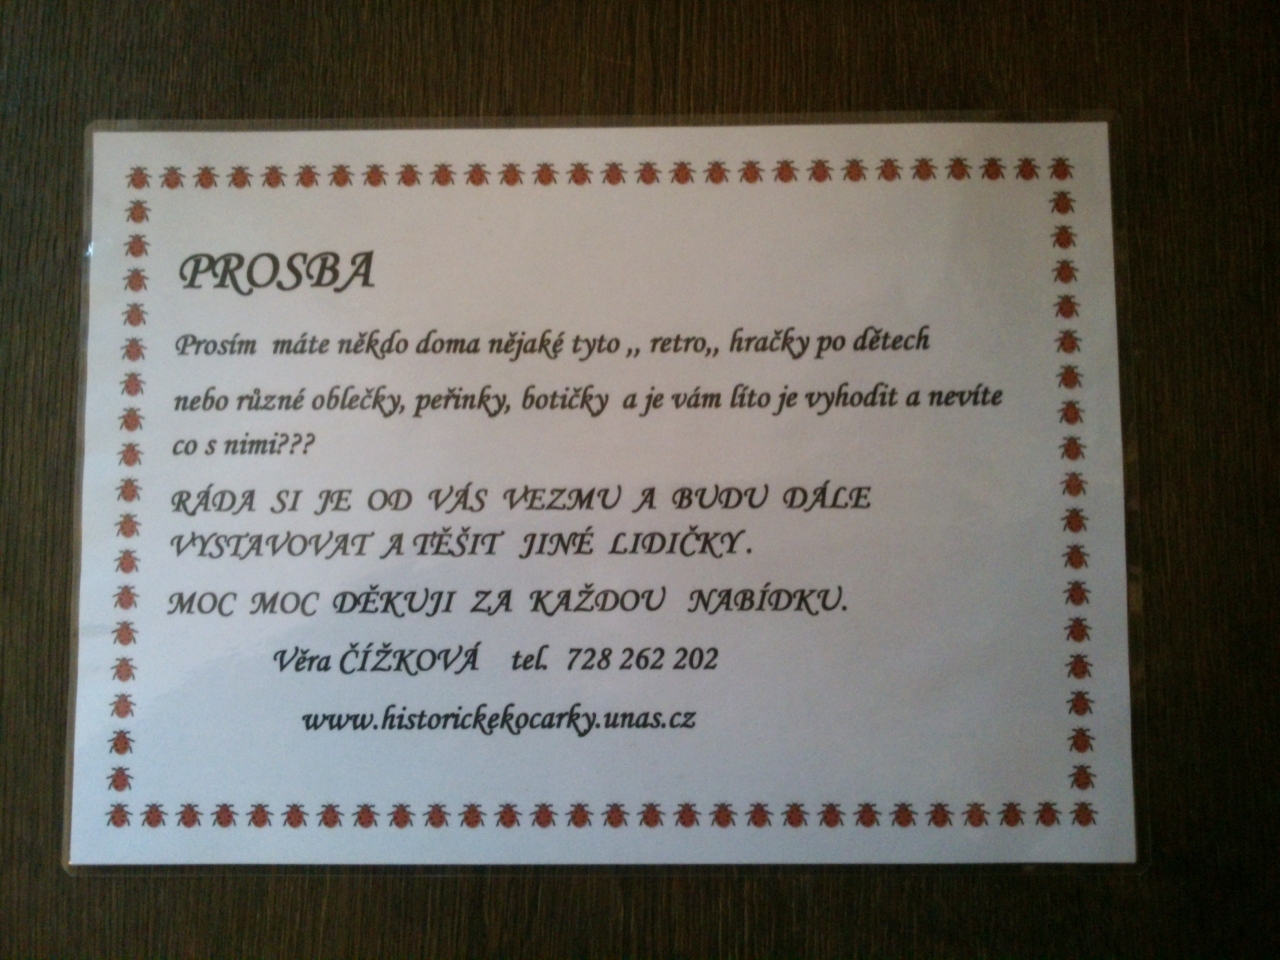 PROSBA
Prosím máte někdo doma nějaké tyto ,, retro,, hračky po dětech
nebo různé oblečky, peřinky, botičky a je vám líto je vyhodit a nevíte
co s nimi???
RÁDA SI JE OD VÁS VEZMU A BUDU DÁLE
VYSTAVOVAT A TĚŠIT JINÉ LIDIČKY.
MOC MOC DĚKUJI ZA KAŽDOU NABÍDKU.
Věra ČÍŽKOVÁ tel. 728 262 202
www.historickekocarky.unas.cz